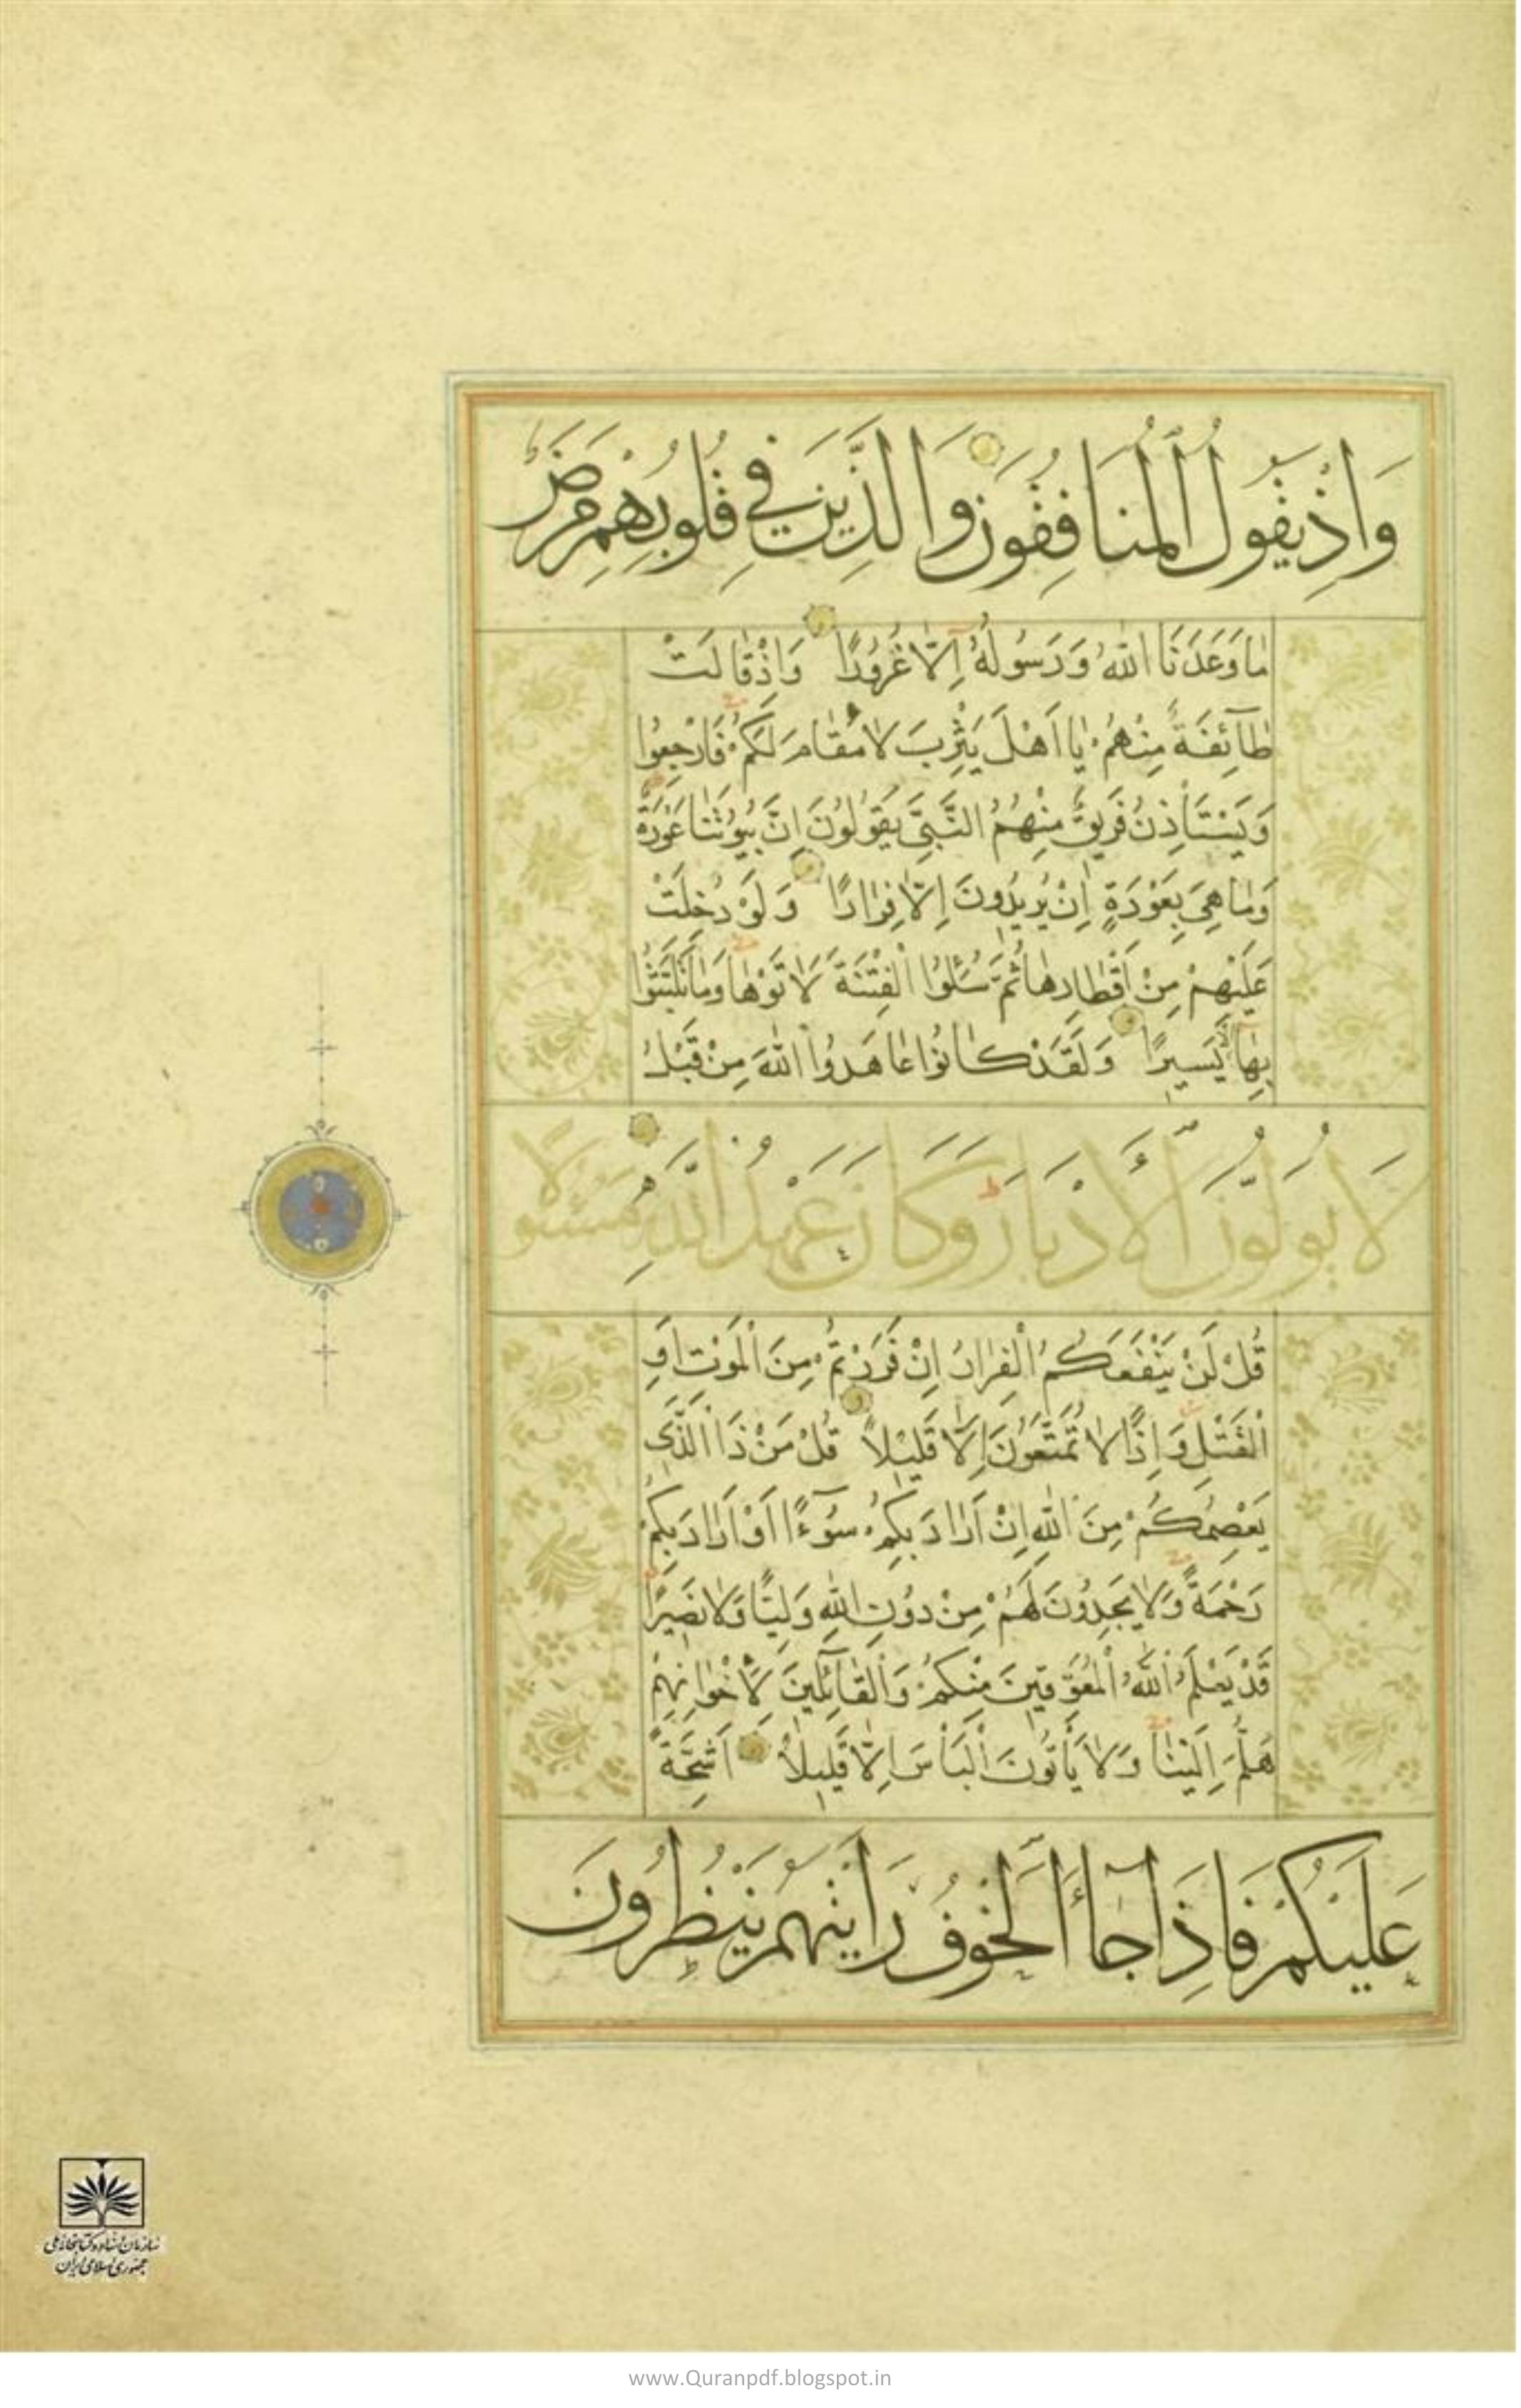 وَاِذْ يَقُولُ الْمُنَافِقُونَ وَالَّذِينَ فِي قُلُوبِهِمْ مَرَضٌ
مٰا وَعَدَنَا اللّٰهُ وَرَسُولُهُ اِلَّا غُرُورًا وَاِذْ قٰالَتْ
طٰٓائِفَةٌ مِنْهُمْ يٰا اَهْلَ يَثْرِبَ لٰا مُقٰامَ لَكُمْ فَارْجِعُوا
وَيَسْتَأْذِنُ فَرِيقٌ مِنْهُمُ النَّبِيَّ يَقُولُونَ اِنَّ بُيُوتَنٰا عَوْرَةٌ
وَمٰا هِيَ بِعَوْرَةٍ اِنْ يُرِيدُونَ اِلَّا فِرٰارًا وَلَوْ دُخِلَتْ
عَلَيْهِمْ مِنْ اَقْطٰارِهٰا ثُمَّ سُئِلُوا الْفِتْنَةَ لَاٰتَوْهٰا وَمٰا تَلَبَّثُوا
بِهٰا اِلَّا يَسِيرًا وَلَقَدْ كٰانُوا عٰاهَدُوا اللّٰهَ مِنْ قَبْلُ
لَا يُوَلُّونَ الْاَدْبَارَ وَكَانَ عَهْدُ اللّٰهِ مَسْئُولًا
قُلْ لَنْ يَنْفَعَكُمُ الْفِرٰارُ اِنْ فَرَرْتُمْ مِنَ الْمَوْتِ اَوِ
الْقَتْلِ وَاِذًا لٰا تُمَتَّعُونَ اِلَّا قَلِيلًا قُلْ مَنْ ذَا الَّذِي
يَعْصِمُكُمْ مِنَ اللّٰهِ اِنْ اَرٰادَ بِكُمْ سُوٓءًا اَوْ اَرٰادَ بِكُمْ
رَحْمَةً وَلٰا يَجِدُونَ لَهُمْ مِنْ دُونِ اللّٰهِ وَلِيًّا وَلٰا نَصِيرًا
قَدْ يَعْلَمُ اللّٰهُ الْمُعَوِّقِينَ مِنْكُمْ وَالْقٰٓائِلِينَ لِاِخْوٰانِهِمْ
هَلُمَّ اِلَيْنٰا وَلٰا يَأْتُونَ الْبَأْسَ اِلَّا قَلِيلًا اَشِحَّةً
عَلَيْكُمْ فَاِذَا جَٓاءَ الْخَوْفُ رَاَيْتَهُمْ يَنْظُرُونَ
سازمان اسناد و کتابخانه ملی
جمهوری اسلامی ایران
www.Quranpdf.blogspot.in